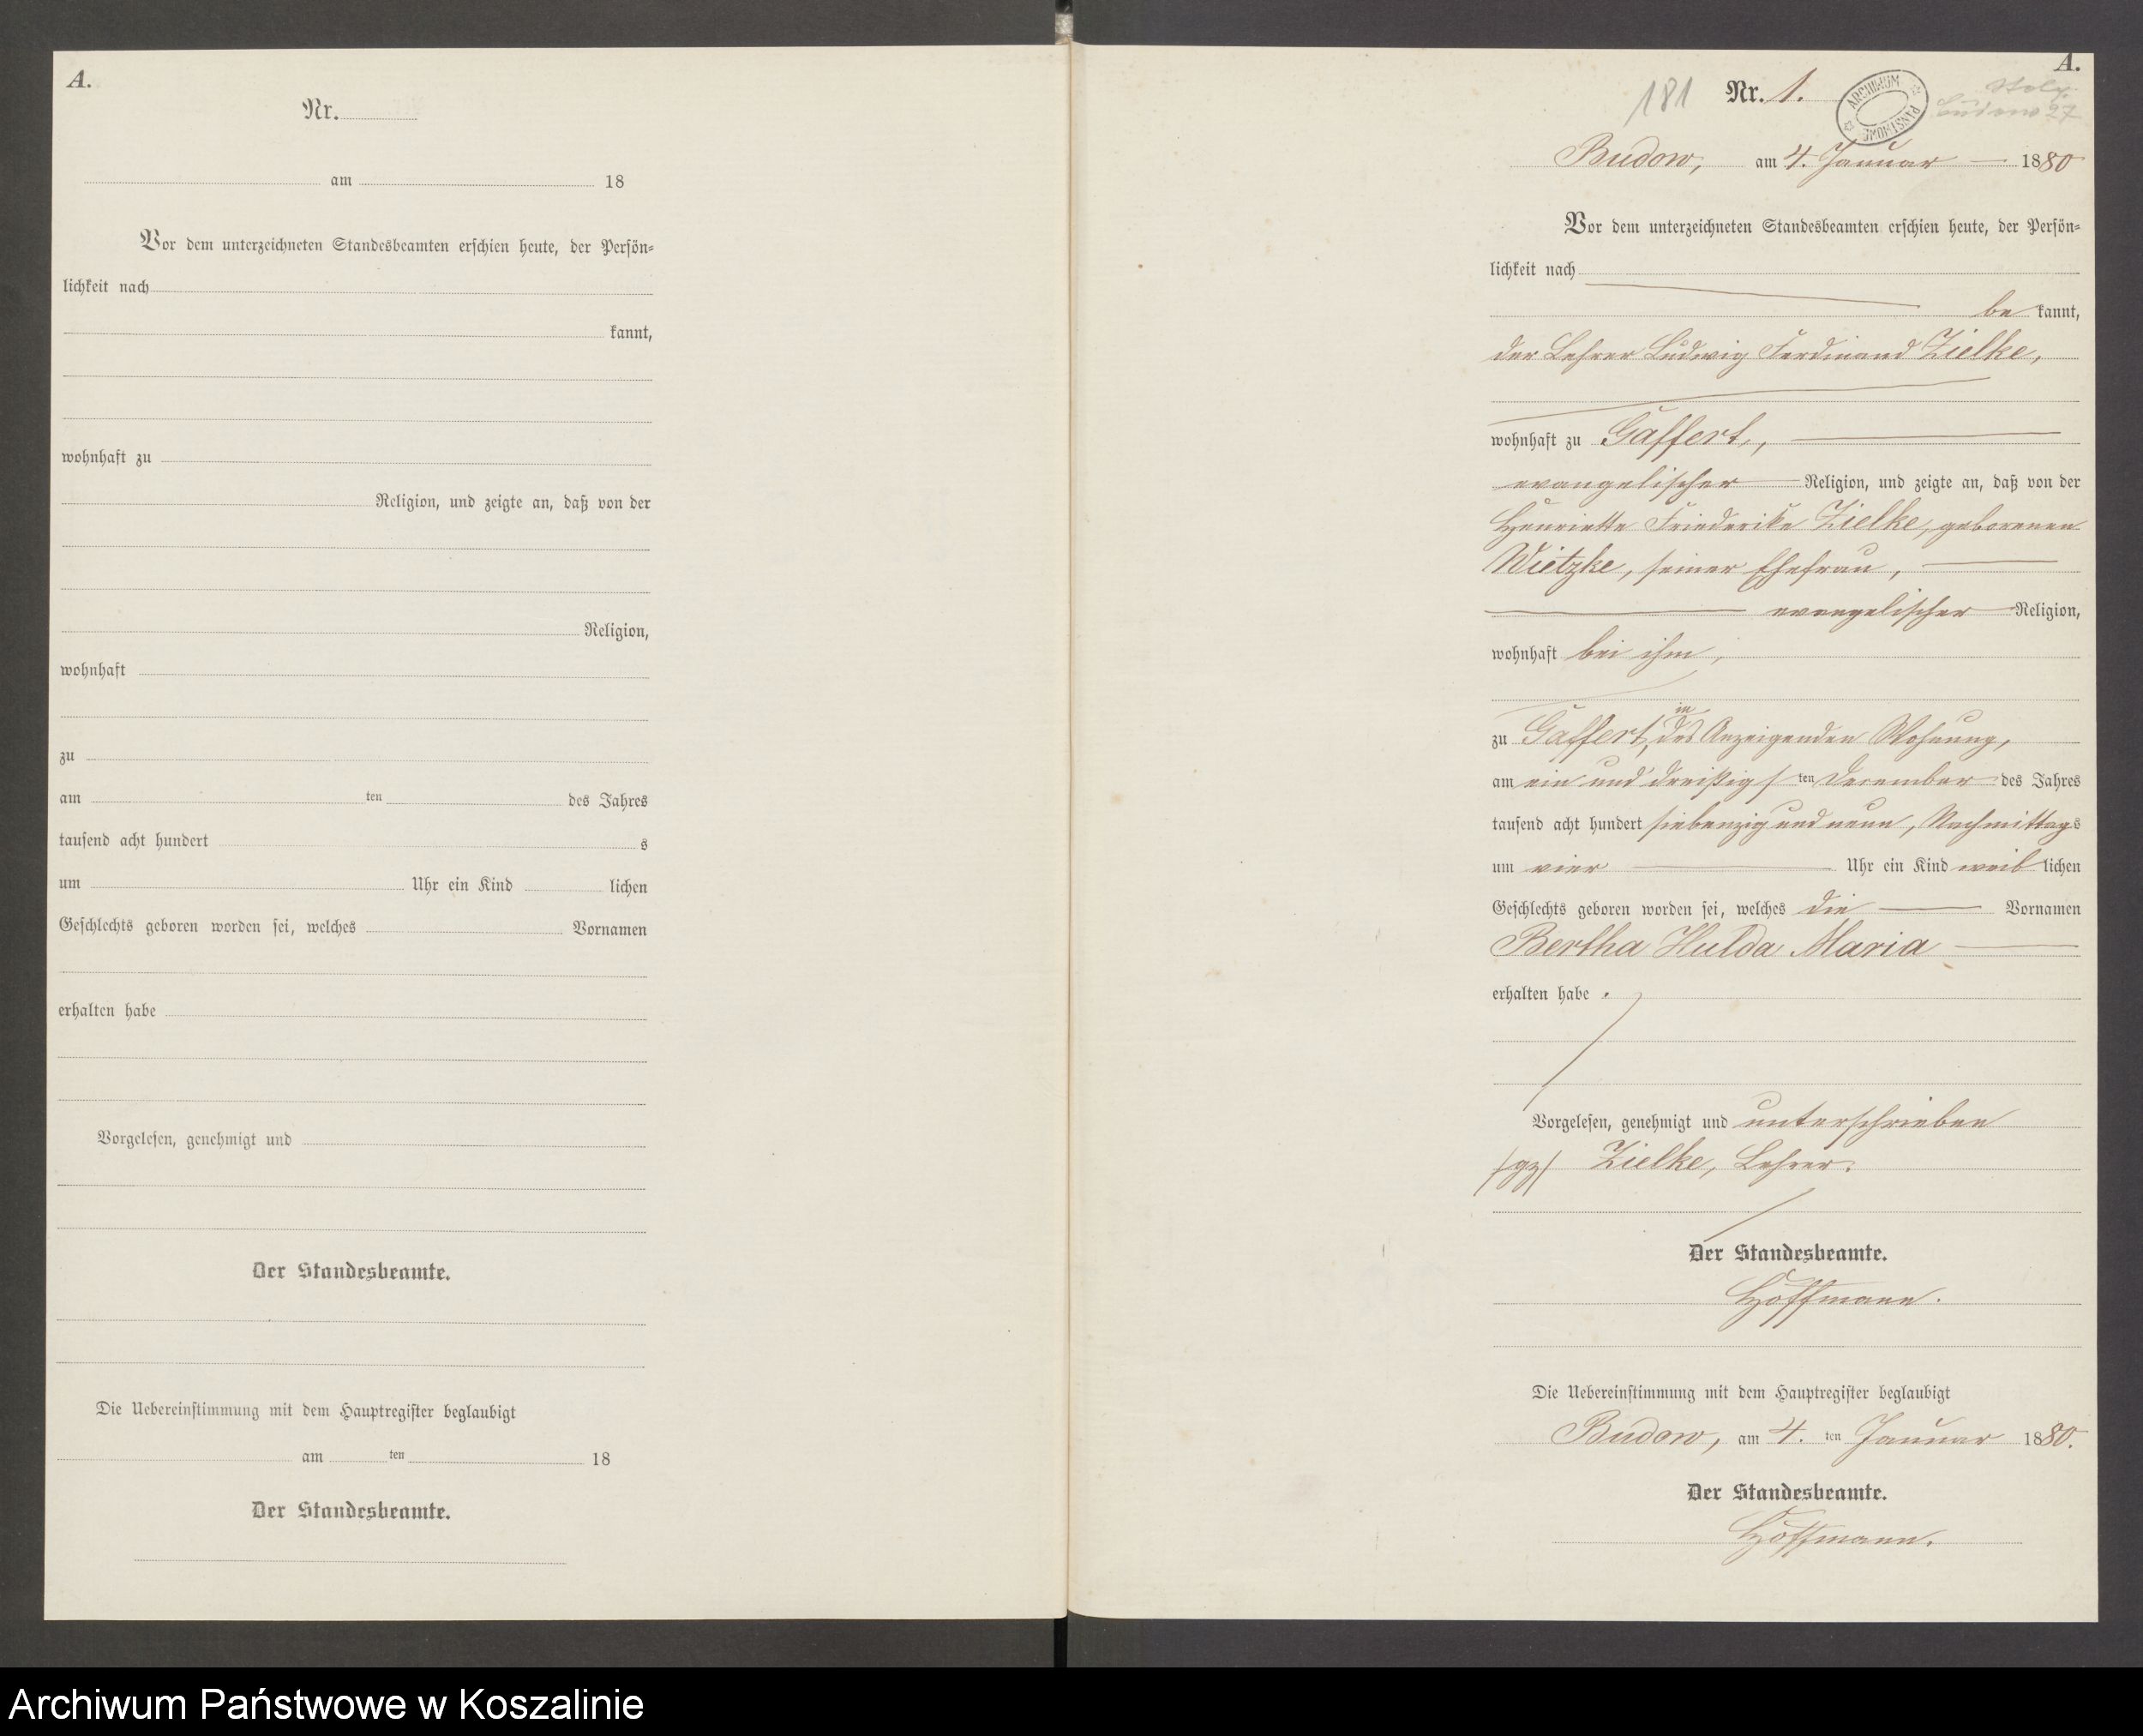 A.
Nr.
am 18
Vor dem unterzeichneten Standesbeamten erschien heute, der Persön-
lichkeit nach
kannt,
wohnhaft zu
Religion, und zeigte an, daß von der
Religion,
wohnhaft
zu
am ten des Jahres
tausend acht hundert s
um Uhr ein Kind lichen
Geschlechts geboren worden sei, welches Vornamen
erhalten habe
Vorgelesen, genehmigt und
Der Standesbeamte.
Die Uebereinstimmung mit dem Hauptregister beglaubigt
am ten 18
Der Standesbeamte.
A.
181 Nr. 1.
ARCHIWUM PAŃSTWOWE
Budow, am 4. Januar 1880
Vor dem unterzeichneten Standesbeamten erschien heute, der Persön-
lichkeit nach
be kannt,
der Lehrer Ludwig Ferdinand Zielke,
wohnhaft zu Gaffert,
evangelischer Religion, und zeigte an, daß von der
Henriette Friederike Zielke, geborenen
Wietzke, seiner Ehefrau,
evangelischer Religion,
wohnhaft bei ihm,
zu Gaffert, in des Anzeigenden Wohnung,
am ein und dreißig ten December des Jahres
tausend acht hundert siebenzig und neun, Nachmittags
um vier Uhr ein Kind weib lichen
Geschlechts geboren worden sei, welches die Vornamen
Bertha Hulda Maria
erhalten habe.
Vorgelesen, genehmigt und unterschrieben
/gz/ Zielke, Lehrer.
Der Standesbeamte.
Hoffmann.
Die Uebereinstimmung mit dem Hauptregister beglaubigt
Budow, am 4. ten Januar 1880.
Der Standesbeamte.
Hoffmann.
Archiwum Państwowe w Koszalinie